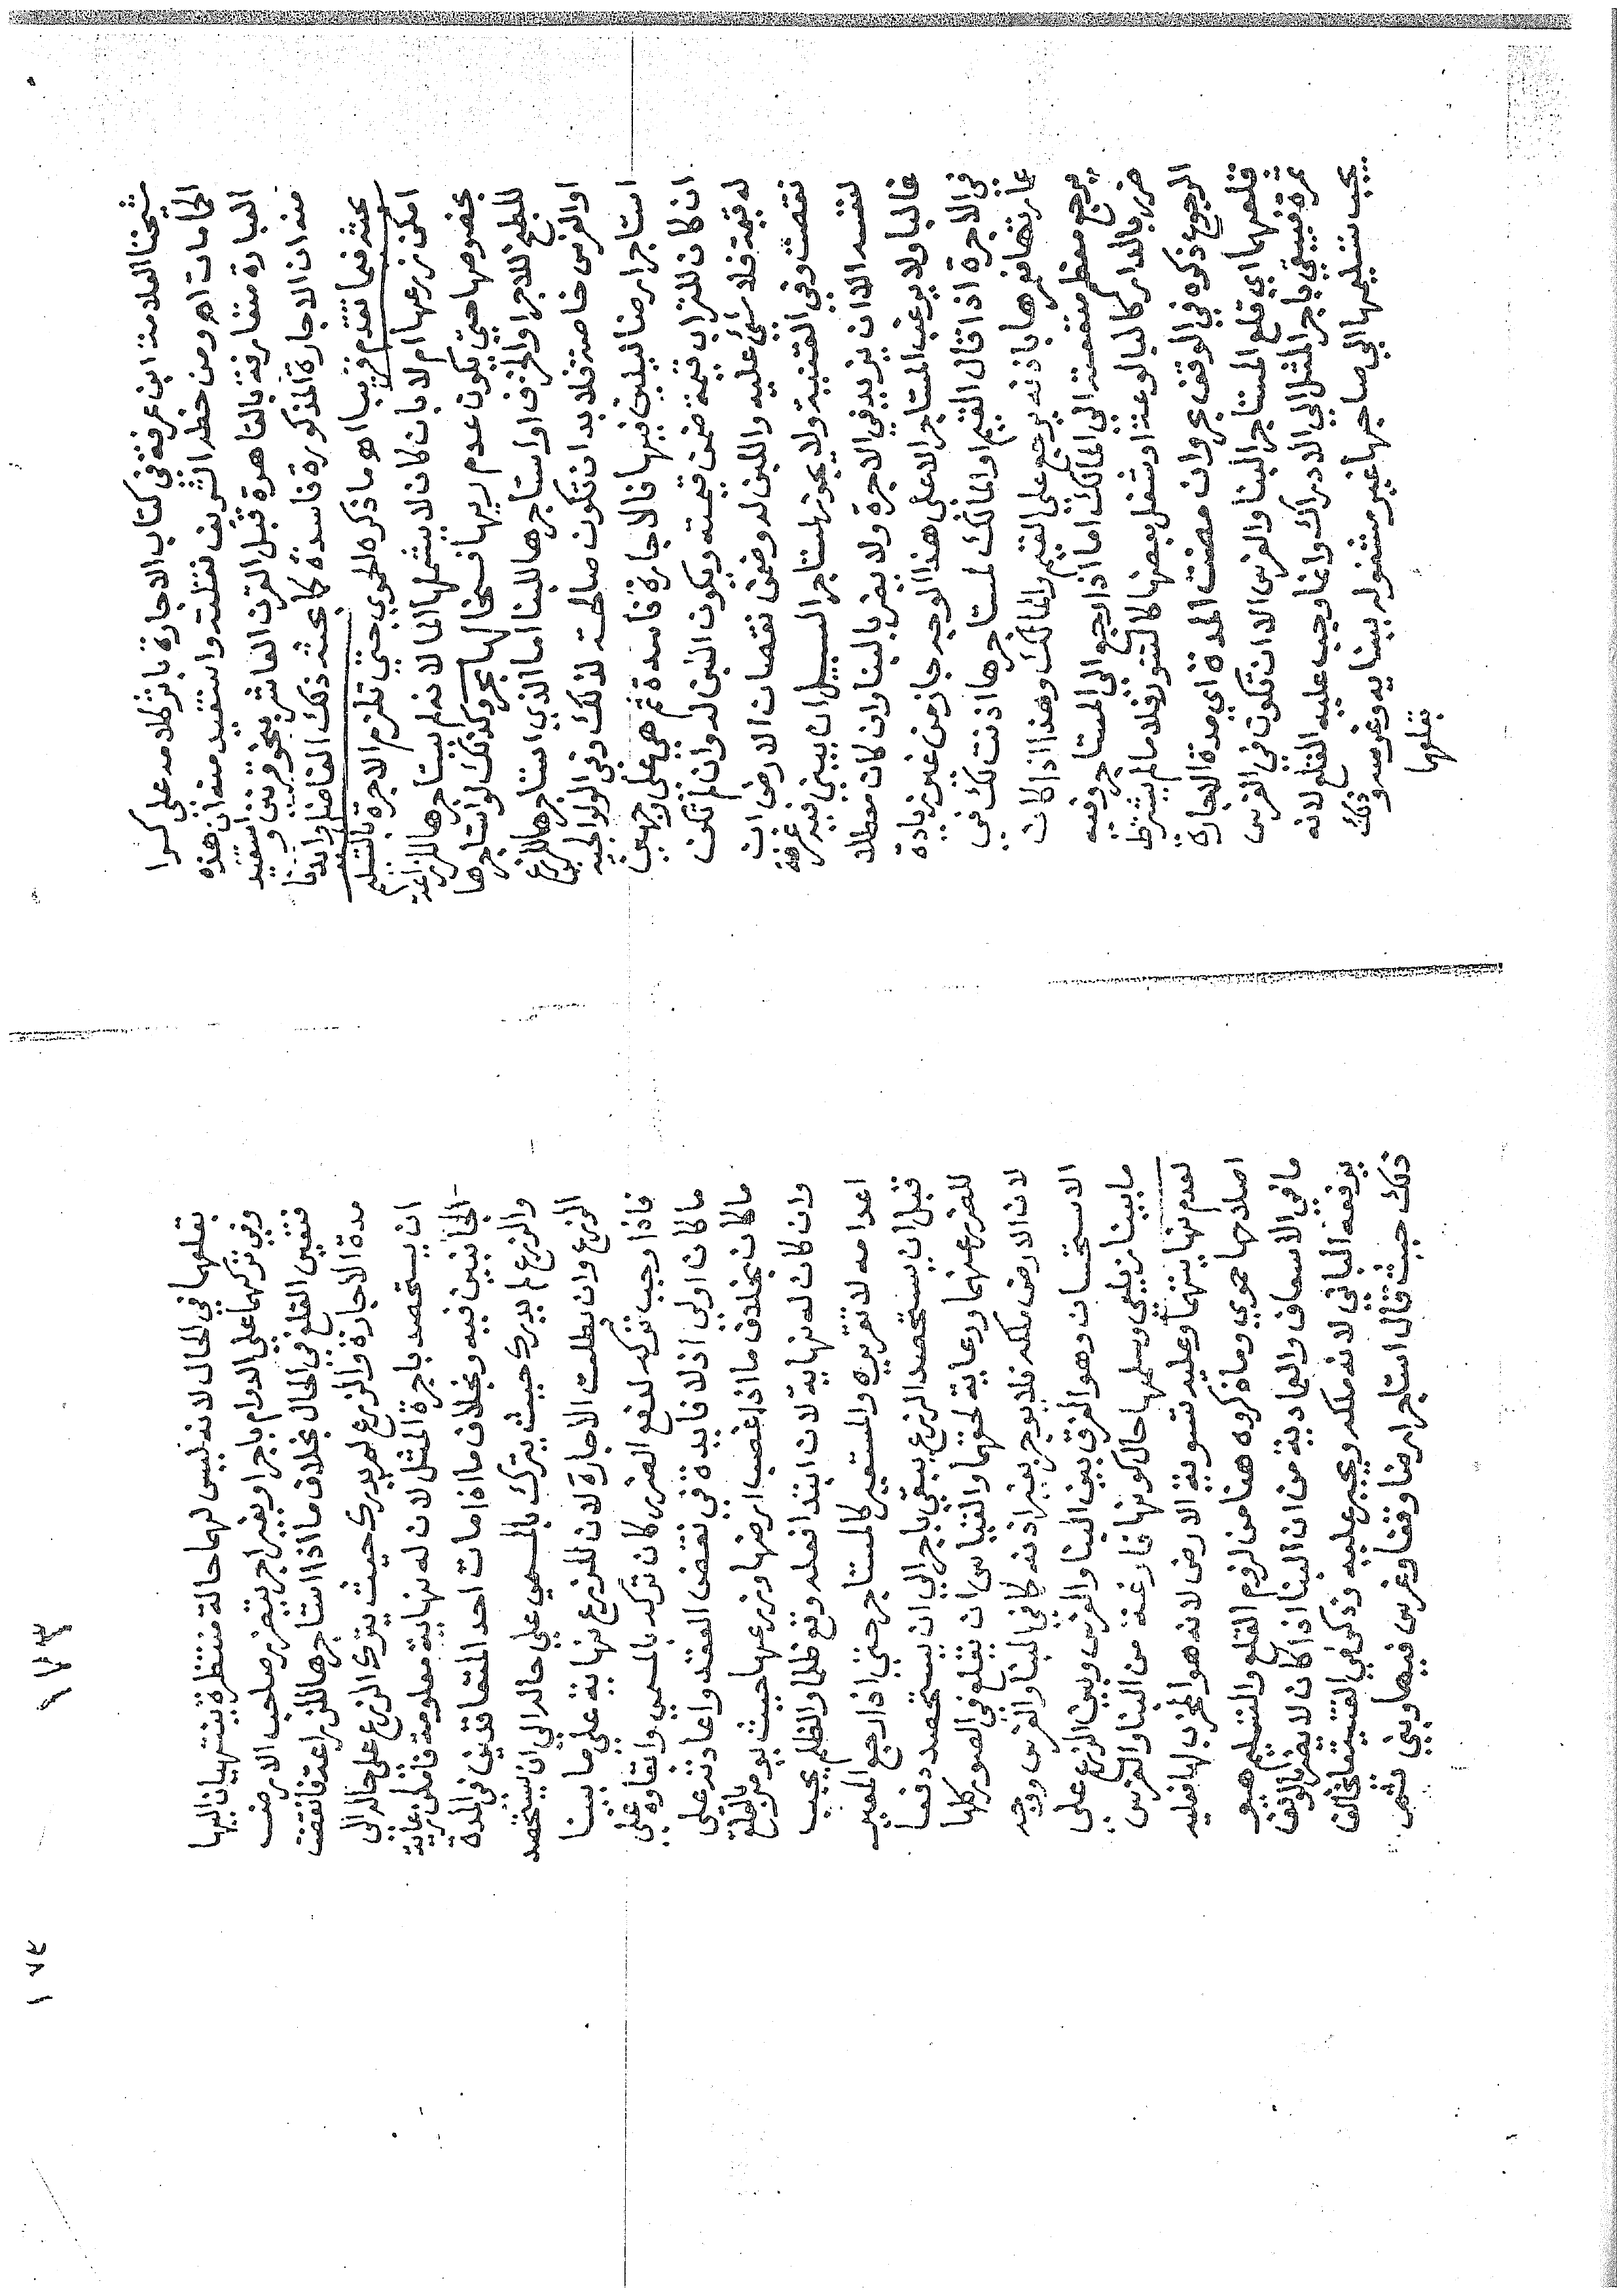 شيخنا العلامة ابن عرفة في كتاب الاجارة باثر كلامه على كرا
الحمامات اه ومن خطه الشريف نقلت واستفيد منه ان هذه
العبارة متعارفة بالقاهرة قبل القرن العاشر بنحو قرنين و استفيد
منه ان الاجارة المذكورة فاسدة كما بحثه ذلك الفاضل وايدنا
بحثه فيما تقدم قريبا اه ما ذكره الحموي حتى تلزم الاجرة بالتسليم
امكن زرعها ام لا بان كان لا يشملها الما لانه لم يستاجرها للزراعة
بخصوصها حتى يكون عدم ريها فسخا لها بحر وكذلك لو استاجرها
للطبخ للاجر او الخزف او استاجرها للبنا اما الذي استاجرها للزرع
او الغرس خاصة فلا بد ان تكون صالحة لذلك وفي الولوالجية
استاجر ارضا ليلبن فيها فالاجارة فاسدة ثم هي على وجهين
ان كان للتراب قيمة ضمن قيمته ويكون اللبن له وان لم تكن
له قيمة فلا شئ عليه واللبن له وضمن نقصان الارض ان
نقصت وفي القنية ولا يجوز لمستاجر السبيل ان يبني فيه غرفة
لنفسه الا ان يزيد في الاجرة ولا يضر بالبنا وان كان معطلا
غالبا ولا يرغب المستاجر الا على هذا الوجه جاز من غير زيادة
في الاجرة اذا قال القيم او المالك لمستاجرها اذنت لك في
عمارتها فعمرها باذنه يرجع على القيم والمالك وهذا اذا كان
يرجع معظم منفعته الى المالك اما اذا رجع الى المستاجر وفيه
ضرر بالدار كالبالوعة او شغل بعضها كالتنور فلا ما لم يشترط
الرجوع ذكره في الوقف بحر وان مضت المدة اي مدة اجارة
قلعهما اي قلع المستاجر البنا والغرس الا ان تكون في الغرس
ثمرة فيبقى باجر المثل الى الادراك وانما وجب عليه القلع لانه
يجب تسليمها الى صاحبها غير مشغوله ببنايه وغرسه وذلك
بقلعها
بقلعهما في الحال لانه ليس لهما حالة منتظرة ينتهيان اليها
وفي تركهما على الدوام باجر او بغير اجر يتضرر صاحب الارض
فتعين القلع في الحال بخلاف ما اذا استاجرها للزراعة فانقضت
مدة الاجارة والزرع لم يدرك حيث يترك الزرع على حاله الى
ان يستحصد باجرة المثل لان له نهاية معلومة فامكن رعاية
الجانبين فيه وبخلاف ما اذا مات احد المتعاقدين في المدة
والزرع لم يدرك حيث يترك بالمسمى على حاله الى ان يستحصد
الزرع وان بطلت الاجارة لان للزرع نهاية على ما بينا
فاذا وجب تركه لدفع الضرر كان تركه بالمسمى وابقاوه على
ما كان اولى اذ لا فايدة في نقض العقد واعادته على
ما كان بخلاف ما اذا غصب ارضا وزرعها حيث يومر بالقلع
وان كان له نهاية لان ابتدا فعله وقع ظلما والظلم يجب
اعدامه لا تقريره والمستعير كالمستاجر حتى اذا رجع المعير
قبل ان يستحصد الزرع يبقى باجر الى ان يستحصد دفعا
للضرر عنهما ورعاية لحقهما والقياس ان يقلع في الصور كلها
لان الارض ملكه فلا يوجر بغير اذنه كما في البنا والغرس ووجه
الاستحسان وهو الفرق بين البنا والغرس وبين الزرع على
ما بينا زيلعي وسلمها حال كونها فارغة من البنا والغرس
لعدم نهايتهما وعليه تسوية الارض لانه هو المخرب لها فعليه
اصلاحها حموي وما ذكروه هنا من لزوم القلع والتسليم هو
ما في الاسعاف والعمادية من ان البنا اذا كان لا يضر بالوقف
يرفعه الباني لانه ملكه ويجبر عليه وذكر في القنية ما يخالف
ذلك حيث قال استاجر ارضا وقفا وغرس فيها وبنى ثم
١٧٣